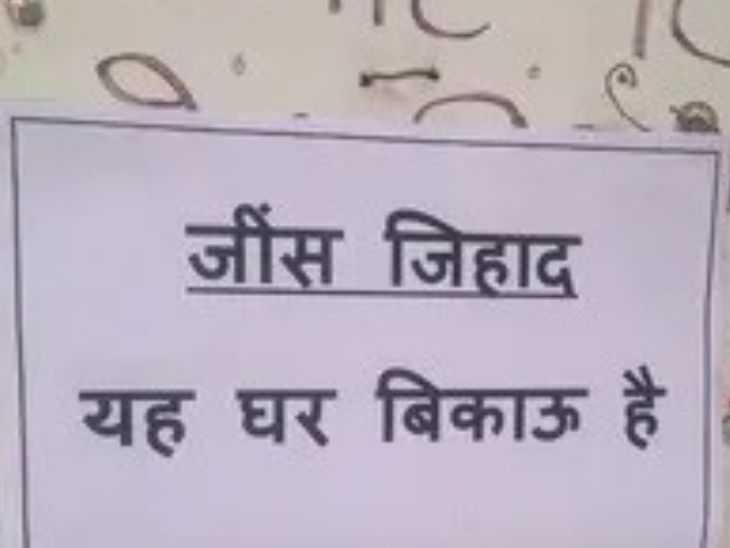 जींस जिहाद
यह घर बिकाऊ है